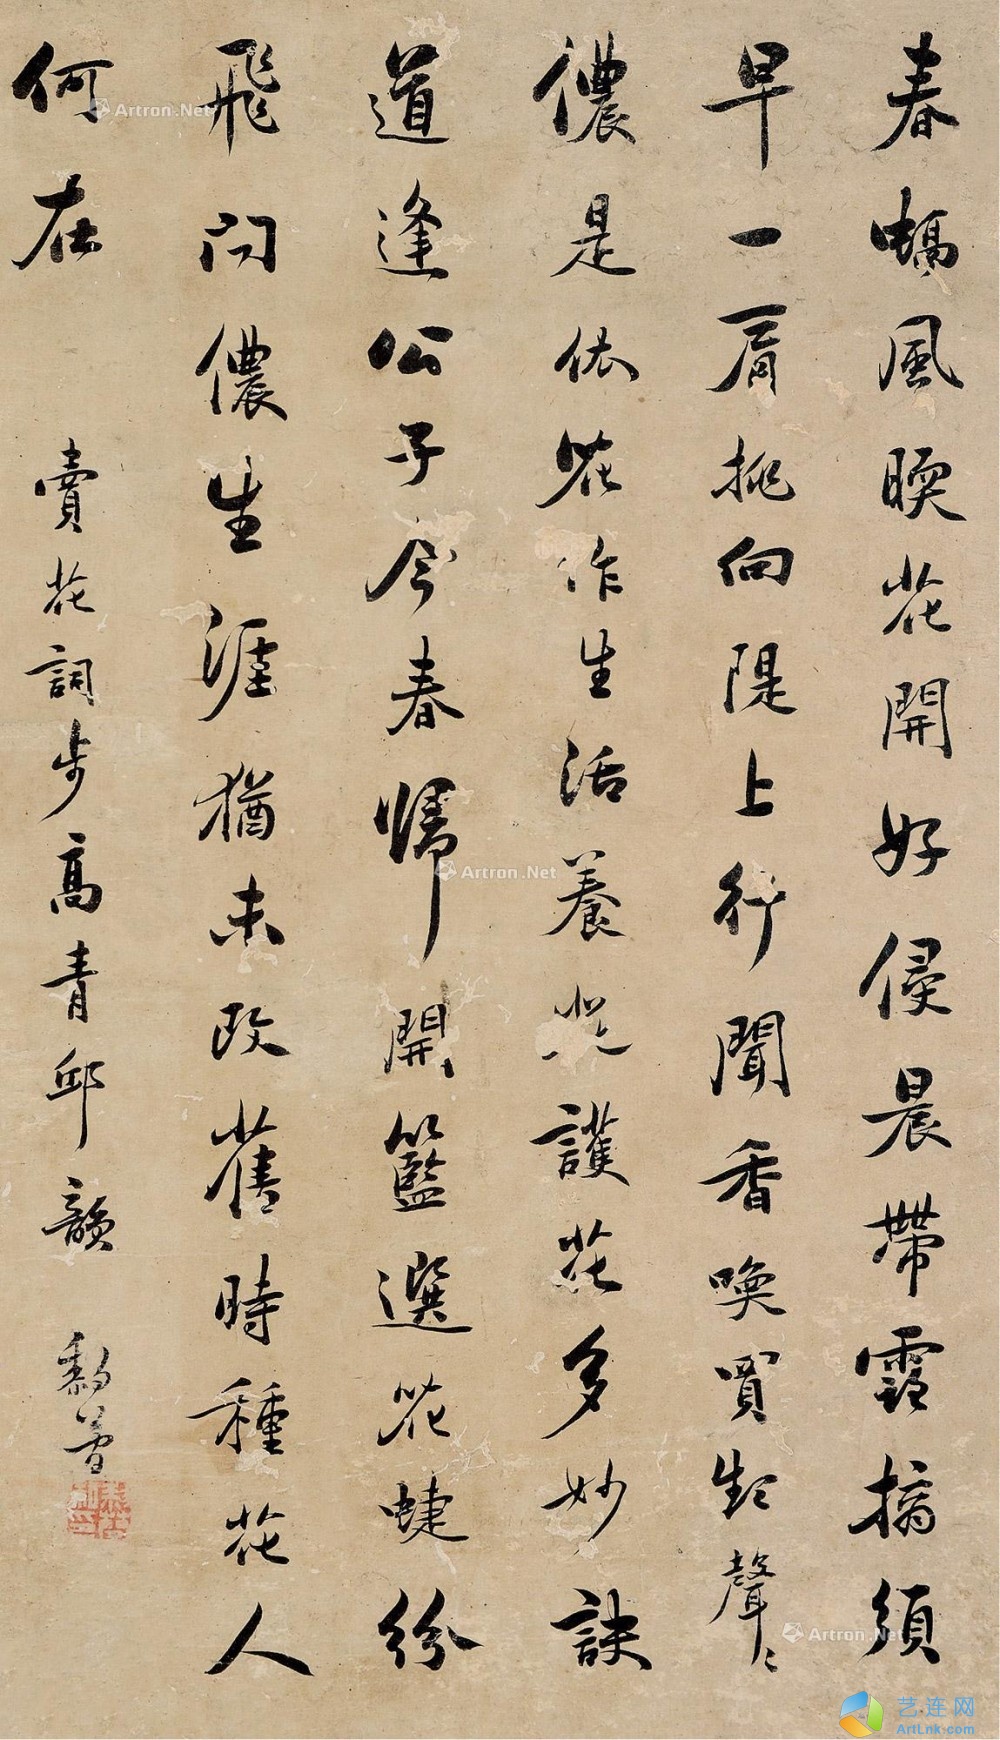 春蟠風暖花開好侵晨帶露摘須
早一肩挑向隄上行聞香喚買點聲〻
儂是依花作生活養花護花多妙訣
道逢公子今春歸開籃選花蜨紛
飛問儂生涯猶未改舊時種花人
何在
賣花詞步高青邱韻
勷曾
Artron.Net
Artron.Net
Artron.Net
艺连网
ArtLnk.com